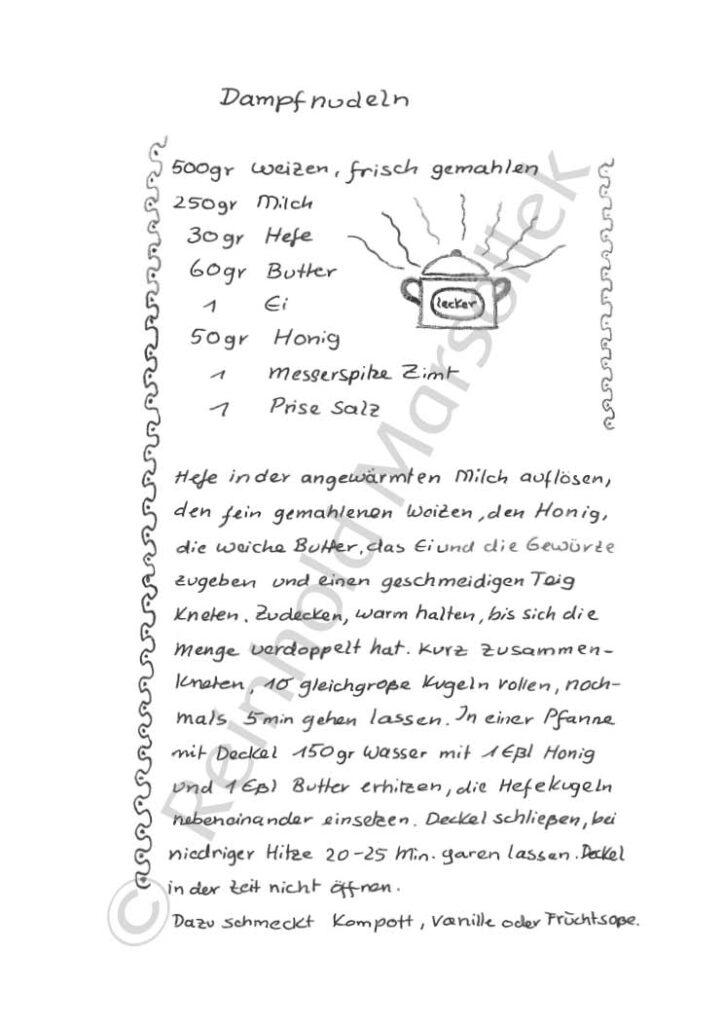 Dampfnudeln
500gr Weizen, frisch gemahlen
250gr Milch
30gr Hefe
60gr Butter
1 Ei
50gr Honig
1 Messerspitze Zimt
1 Prise Salz
lecker
Hefe in der angewärmten Milch auflösen,
den fein gemahlenen Weizen, den Honig,
die weiche Butter, das Ei und die Gewürze
zugeben und einen geschmeidigen Teig
kneten. Zudecken, warm halten, bis sich die
Menge verdoppelt hat. Kurz zusammen-
kneten, 10 gleichgroße Kugeln rollen, noch-
mals 5min gehen lassen. In einer Pfanne
mit Deckel 150gr Wasser mit 1Eßl Honig
und 1Eßl Butter erhitzen, die Hefekugeln
nebeneinander einsetzen. Deckel schließen, bei
niedriger Hitze 20-25 Min. garen lassen. Deckel
in der Zeit nicht öffnen.
Dazu schmeckt Kompott, Vanille oder Früchtsoße.
© Reinhold Marsollek